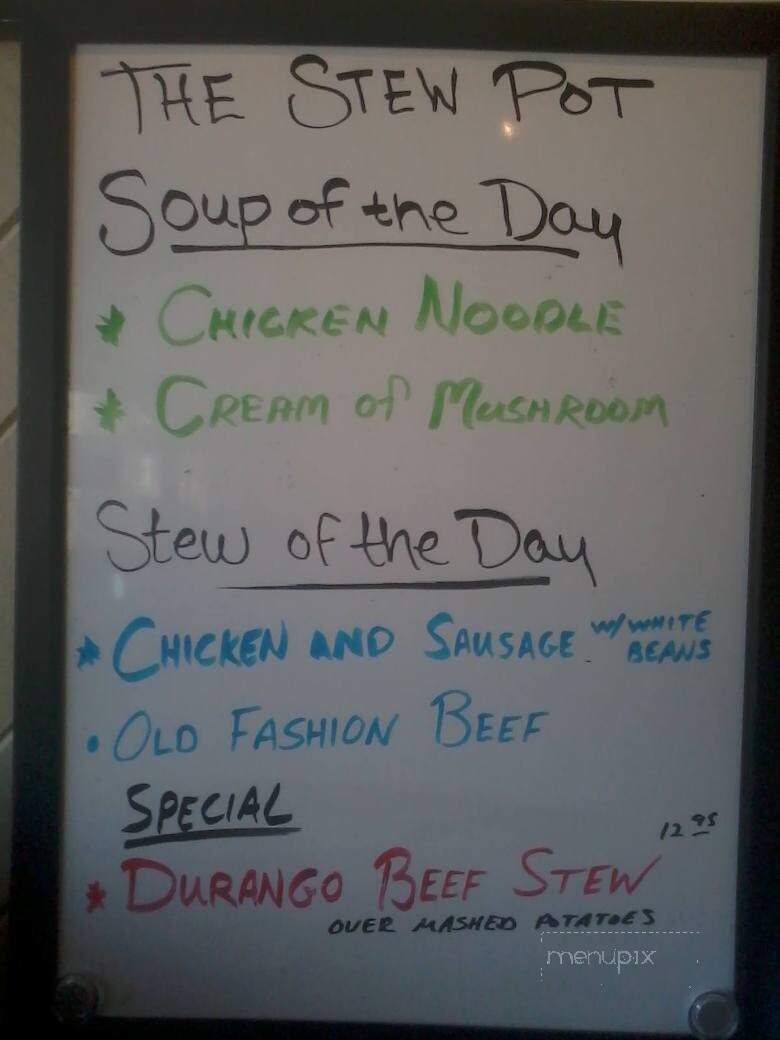 THE STEW POT
Soup of the Day
* CHICKEN NOODLE
* CREAM of MUSHROOM
Stew of the Day
* CHICKEN AND SAUSAGE w/ WHITE
BEANS
• OLD FASHION BEEF
SPECIAL
12 95
* DURANGO BEEF STEW
OVER MASHED POTATOES
menupix